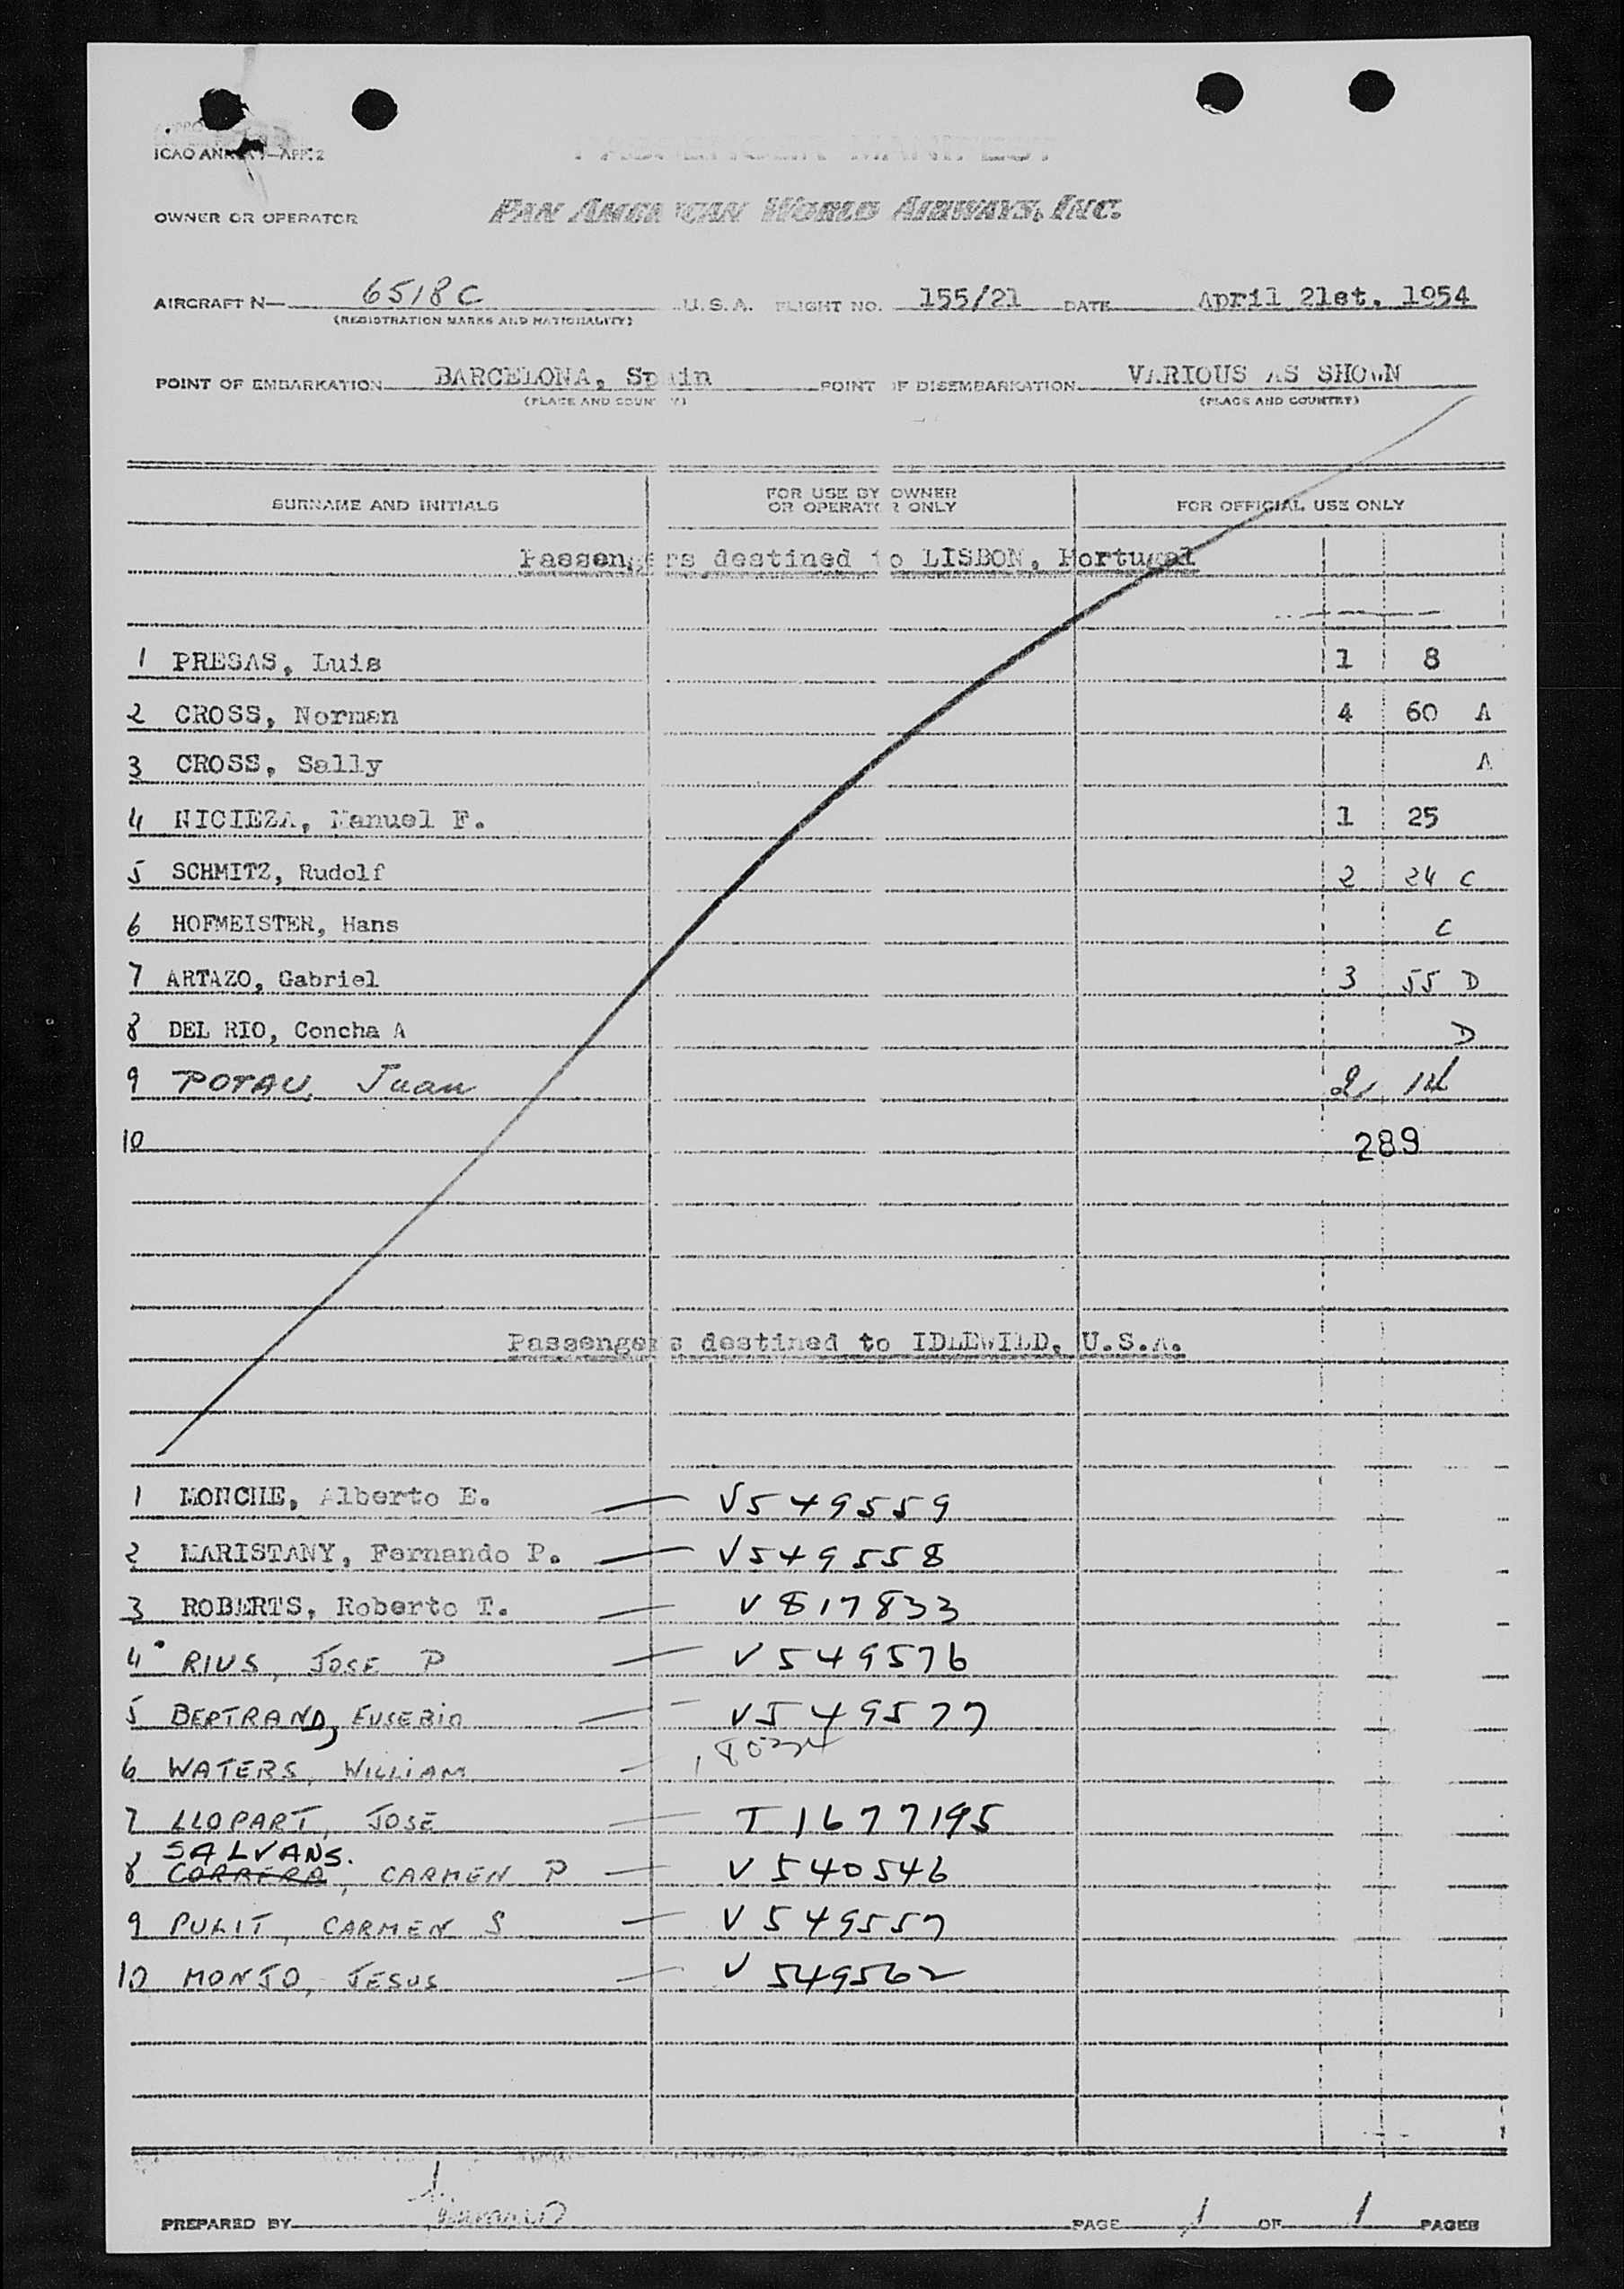 PASSENGER MANIFEST
OWNER OR OPERATOR PAN AMERICAN WORLD AIRWAYS, INC.
AIRCRAFT N— 6518C U.S.A. FLIGHT NO. 155/21 DATE April 21st, 1954
(REGISTRATION MARKS AND NATIONALITY)
POINT OF EMBARKATION BARCELONA, Spain POINT OF DISEMBARKATION VARIOUS AS SHOWN
(PLACE AND COUNTRY) (PLACE AND COUNTRY)
SURNAME AND INITIALS FOR USE BY OWNER OR OPERATOR ONLY FOR OFFICIAL USE ONLY
Passengers destined to LISBON, Portugal
1 PRESAS, Luis 1 8
2 CROSS, Norman 4 60 A
3 CROSS, Sally A
4 NICIEZA, Manuel F. 1 25
5 SCHMITZ, Rudolf 2 24 C
6 HOFMEISTER, Hans C
7 ARTAZO, Gabriel 3 55 D
8 DEL RIO, Concha A D
9 POTAU, Juan 2 14
10 289
Passengers destined to IDLEWILD, U.S.A.
1 MONCHE, Alberto E. — V549559
2 MARISTANY, Fernando P. — V549558
3 ROBERTS, Roberto T. — V 817833
4 RIUS, JOSE P — V 549576
5 BERTRAND, EUSEBIO — V549577
6 WATERS, WILLIAM —
7 LLOPART, JOSE — T 1677195
SALVANS.
8 CORRERA, CARMEN P — V 540546
9 PULIT, CARMEN S — V 549557
10 MONJO, JESUS — V 549562
PREPARED BY PAGE 1 OF 1 PAGES